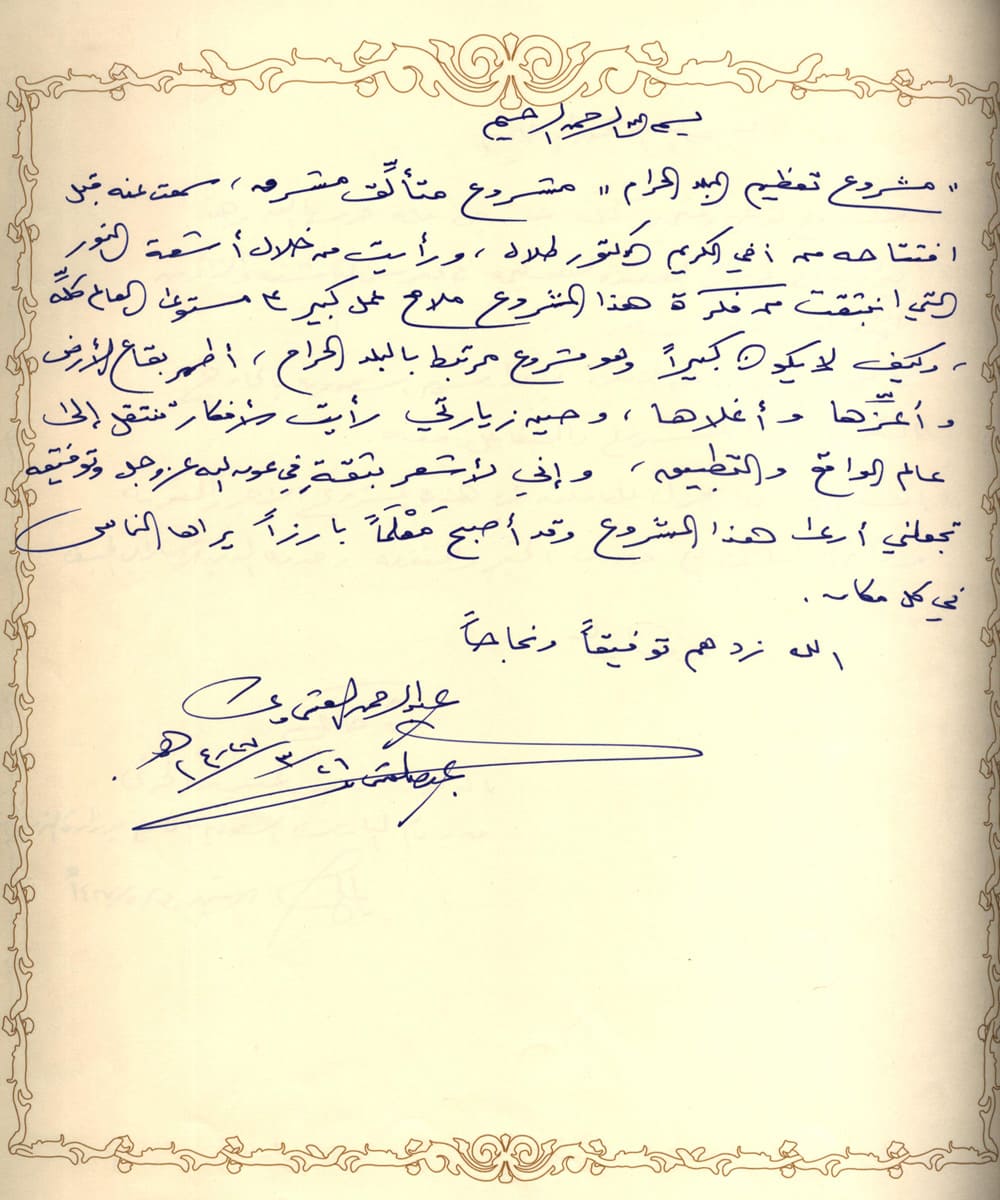 بسم الله الرحمن الرحيم
" مشروع تعظيم البلد الحرام " مشروع متألّق مشرق ، سمعت عنه قبل
افتتاحه من أخي الكريم الدكتور طلال ، ورأيت من خلال أشعة النور
التي انبثقت من فكرة هذا المشروع ملامح عمل كبير على مستوى العالم كلّه
، وكيف لا يكون كبيراً وهو مشروع مرتبط بالبلد الحرام ، أطهر بقاع الأرض
وأعزّها وأغلاها ، وحين زيارتي رأيت الأفكار تنتقل إلى
عالم الواقع والتطبيق ، وإني لأشعر بثقةٍ في عون الله عز وجل وتوفيقه
تجعلني أرى هذا المشروع وقد أصبح مَعْلَمَاً بارزاً يراها الناس
في كل مكان .
الله زدهم توفيقاً ونجاحاً
عبدالرحمن العشماوي
٢٦ / ٣ / ١٤٢٧ هـ .